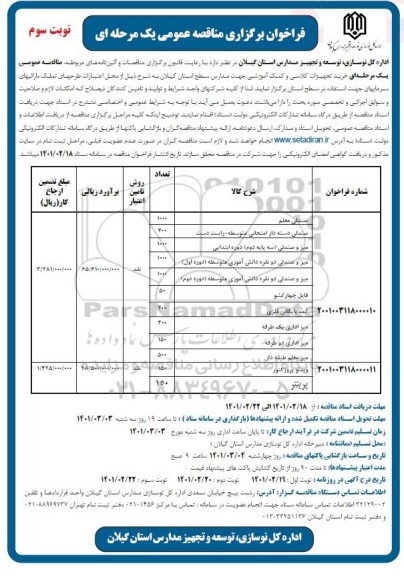 نوبت سوم
فراخوان برگزاری مناقصه عمومی یک مرحله ای
اداره کل نوسازی، توسعه و تجهیز مدارس استان گیلان در نظر دارد با رعایت قانون برگزاری مناقصات و آئین‌نامه‌های مربوطه، مناقصه عمومی
یک مرحله‌ای خرید تجهیزات کلاسی و کمک آموزشی جهت مدارس سطح استان گیلان به شرح ذیل از محل اعتبارات طرحهای تملک دارائیهای
سرمایه‌ای جهت استفاده در سطح استان برگزار نماید. لذا از کلیه شرکتهای واجد شرایط و تولید و تامین کنندگان ذیصلاح که امکانات لازم و صلاحیت
و سوابق اجرائی و تخصصی مورد بحث را دارا می‌باشند دعوت بعمل می آید با توجه به شرایط عمومی و اختصاصی مندرج در اسناد جهت دریافت
اسناد مناقصه از طریق درگاه سامانه تدارکات الکترونیکی دولت (ستاد) اقدام نمایند. توضیح اینکه کلیه مراحل برگزاری مناقصه از دریافت اطلاعات و
اسناد مناقصه عمومی، تحویل اسناد و مدارک، ارسال دعوتنامه، ارائه پیشنهاد مناقصه‌گران و بازگشایی پاکتها از طریق درگاه سامانه تدارکات الکترونیکی
دولت (ستاد) به آدرس www.setadiran.ir انجام خواهد شد و لازم است مناقصه گران در صورت عدم عضویت قبلی، مراحل ثبت نام در سایت
مذکور و دریافت گواهی امضای الکترونیکی را جهت شرکت در مناقصه محقق سازند. تاریخ انتشار فراخوان مناقصه در سامانه ستاد ۱۴۰۱/۰۲/۱۸ میباشد.
شماره فراخوان شرح کالا تعداد روش تامین اعتبار برآورد ریالی مبلغ تضمین ارجاع کار(ریال)
صندلی معلم ۱۰۰۰
صندلی دسته دار امتحانی متوسطه-راست دست ۷۰۰
میز و صندلی (سه پایه دوم) دوره ابتدایی ۱۰۰۰
میز و صندلی دو نفره دانش آموزی متوسطه (دوره اول) ۱۰۰۰
۲۰۰۱۰۰۳۱۱۸۰۰۰۰۱۰ میز و صندلی دو نفره دانش آموزی متوسطه (دوره دوم) ۱۰۰۰ نقد ۶۵/۶۱۰/۰۰۰/۰۰۰ ۳/۲۸۱/۰۰۰/۰۰۰
فایل چهار کشو ۵۰
کمد بایگانی فلزی ۲۰۰
میز اداری یک طرفه ۳۰۰
میز اداری دو طرفه ۱۵۰
میز معلم طبقه دار ۵۰۰
۲۰۰۱۰۰۳۱۱۸۰۰۰۰۱۱ ویدئو پروژکتور ۱۵۰ نقد ۲۸/۵۰۰/۰۰۰/۰۰۰ ۱/۴۲۵/۰۰۰/۰۰۰
پرینتر ۱۵۰
ParsNamadData
۰۲۱-۸۸۳۴۹۶۷۰-۵
مهلت دریافت اسناد مناقصه : از ۱۴۰۱/۰۲/۱۸ الی ۱۴۰۱/۰۲/۲۲
مهلت تحویل اسناد مناقصه تکمیل شده و ارائه پیشنهادها (بارگذاری در سامانه ستاد) : تا ساعت ۱۹ روز سه شنبه ۱۴۰۱/۰۳/۰۳
زمان تسلیم تضمین شرکت در فرآیند ارجاع کار: تا پایان ساعت اداری روز سه شنبه مورخ ۱۴۰۱/۰۳/۰۳
(محل تسلیم ضمانتنامه : دبیرخانه اداره کل نوسازی مدارس استان گیلان)
تاریخ و ساعت بازگشایی پاکتهای مناقصه: روز چهارشنبه ۱۴۰۱/۰۳/۰۴ ساعت ۹ صبح
مدت اعتبار پیشنهادها: تا مدت ۹۰ روز از تاریخ گشایش پاکت های پیشنهاد قیمت.
تاریخ درج آگهی در روزنامه : نوبت اول : ۱۴۰۱/۰۲/۱۹ نوبت دوم : ۱۴۰۱/۰۲/۲۰ نوبت سوم : ۱۴۰۱/۰۲/۲۲
اطلاعات تماس دستگاه مناقصه گزار: آدرس: رشت پیچ خیابان سعدی اداره کل نوسازی مدارس استان گیلان واحد قراردادها و تلفن
۳۲۱۲۹۰۰۲ اطلاعات تماس دفاتر ثبت نام سامانه ستاد جهت انجام عضویت در سامانه : تماس با مرکز ۱۴۵۶-۰۲۱ دفتر ثبت نام تهران ۸۸۹۶۹۷۳۷-۰۲۱
و دفتر ثبت نام استان گیلان ۳۳۲۵۱۱۳۶-۰۱۳
اداره کل نوسازی، توسعه و تجهیز مدارس استان گیلان